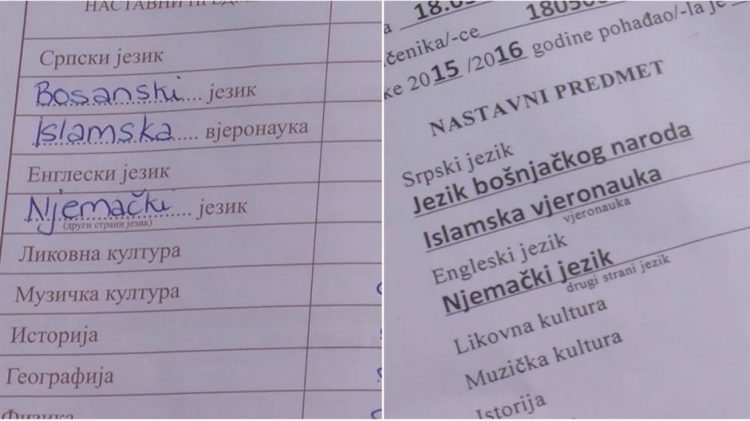 НАСТАВНИ
Српски језик
Bosanski.... језик
Islamska.... вјеронаука
Енглески језик
Njemački.... језик
(други страни језик)
Ликовна култура
Музичка култура
Историја
Географија
Физика
18.0
čenika/-ce 180500
ke 2015 /2016 godine pohađao/-la je
NASTAVNI PREDMET
Srpski jezik
Jezik bošnjačkog naroda
Islamska vjeronauka
vjeronauka
Engleski jezik
Njemački jezik
drugi strani jezik
Likovna kultura
Muzička kultura
Istorija